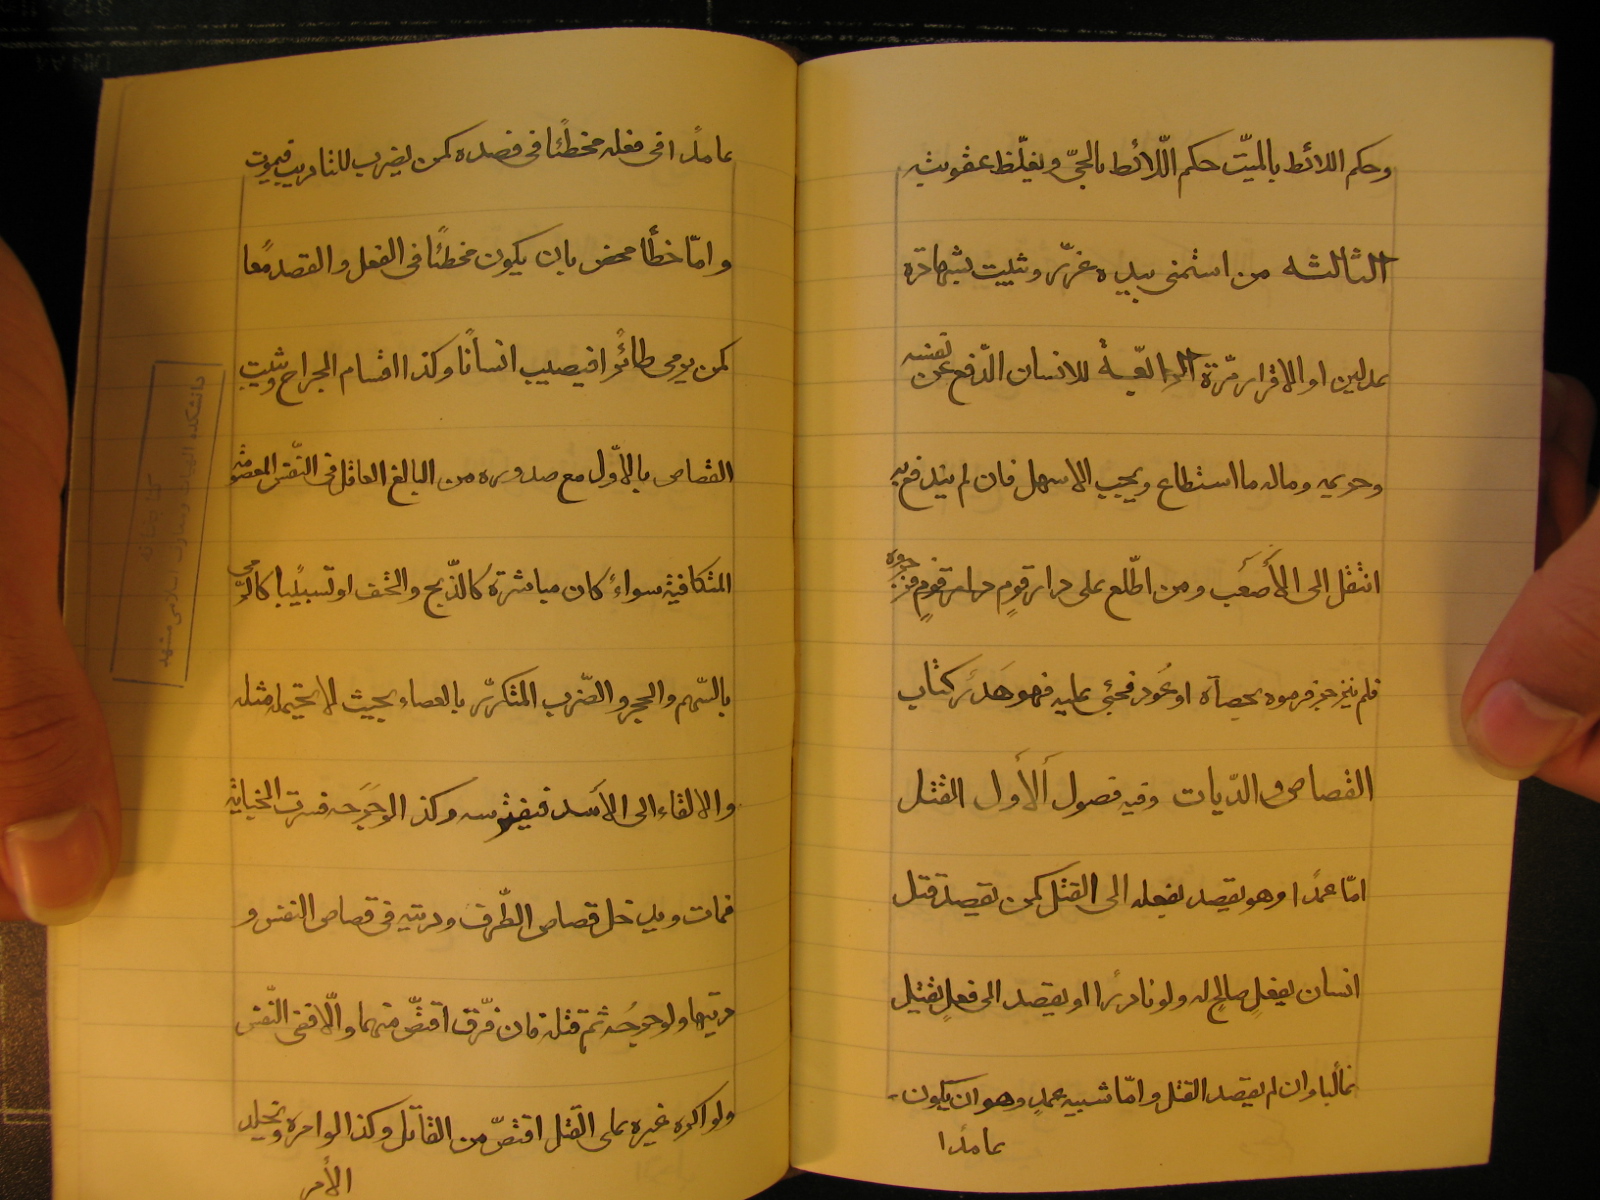 وحكم اللائط بالميّت حكم اللّائط بالحيّ ويغلّظ عقوبته
الثالثه من استمنى بيده عزّر ويثبت بشهادة
عدلين او الاقرار مرّة الرابعة للانسان الدّفع عن نفسه
وحريمه وماله ما استطاع ويجب الاسهل فان لم يندفع به
انتقل الى الأَصعَب ومن اطّلع على دار قومٍ فزجروه
فلم ينزجر فرموه بحصاة او عُود فجنى عليه فهو هَدَر كتاب
القصاص والدّيات وفيه فصول اَلاَول القتل
امّا عمدًا وهو يقصد بفعله الى القتل كمن يقصد قتل
انسان بفعلٍ صالحٍ له ولو نادرًا او يقصد الى فعلٍ يقتل
غالبا وان لم يقصد القتل وامّا شبيه عمدٍ وهو ان يكون
عامدًا
عامدًا فى فعله مخطئًا فى قصده كمن يضرب للتاديب فيموت
وامّا خطأ محض بان يكون مخطئًا فى الفعل والقصد معًا
كمن يرمى طائرًا فيصيب انسانًا وكذا اقسام الجراح ويثبت
القصاص بالأوّل مع صدوره من البالغ العاقل فى النّفس المعصومة
المتكافية سواءً كان مباشرة كالذّبح والخنق او تسبيبًا كالرّمى
بالسّهم والحجر والضّرب المتكرّر بالعصاء بحيث لا يحتمله مثله
والالقاء الى الاَسد فيفترسه وكذا لو جَرَحه فسرت الجناية
فمات ويدخل قصاص الطّرف وديته فى قصاص النفس و
ديتها ولو جرحُه ثمّ قتله فان فرّق اقتصّ منهما والّا ففى النّفس
ولو اكره غيره على القتل اقتصّ من القاتل وكذا لو امره ويخلد
الأمر
دانشكده الهيات و معارف اسلامى مشهد